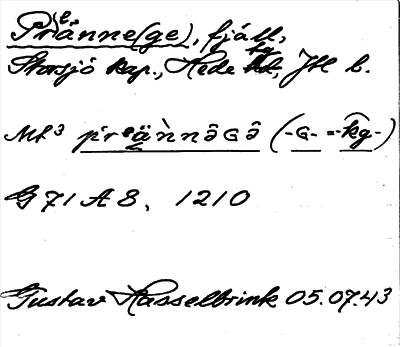 Prånne(ge), fjäll,
Storsjö kap., Hede tg, Jtl l.
Mt³ pr ə ä̀ n n ə̂ G ə̂ (-G- = -k͡g-)
G 71 A 8, 1210
Gustav Hasselbrink 05.07.43